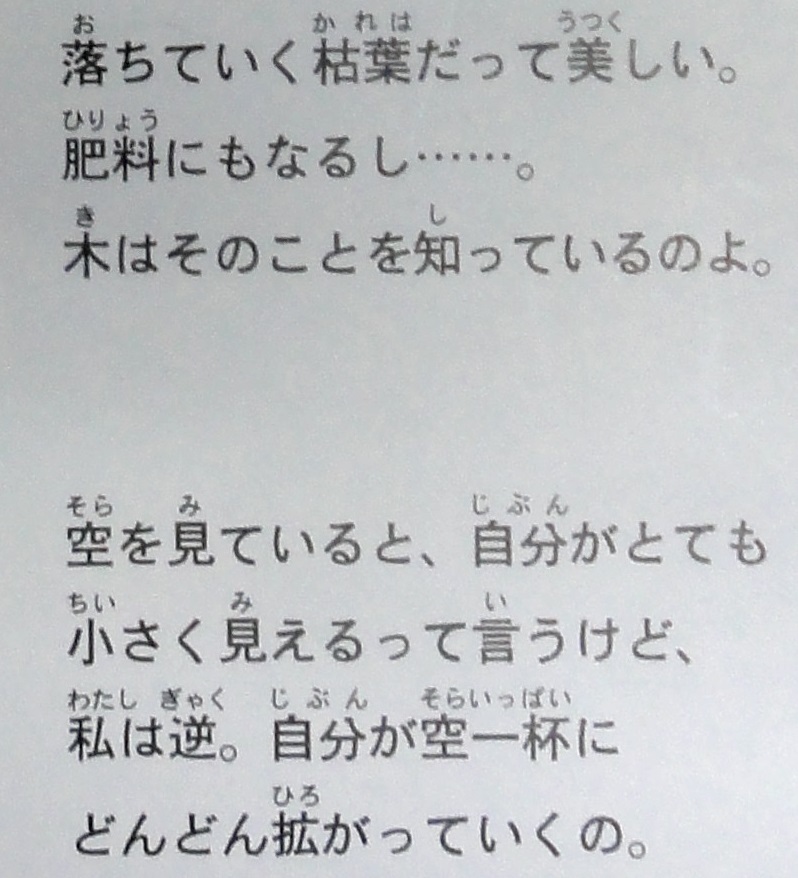 落ちていく枯葉だって美しい。
肥料にもなるし……。
木はそのことを知っているのよ。
空を見ていると、自分がとても
小さく見えるって言うけど、
私は逆。自分が空一杯に
どんどん拡がっていくの。